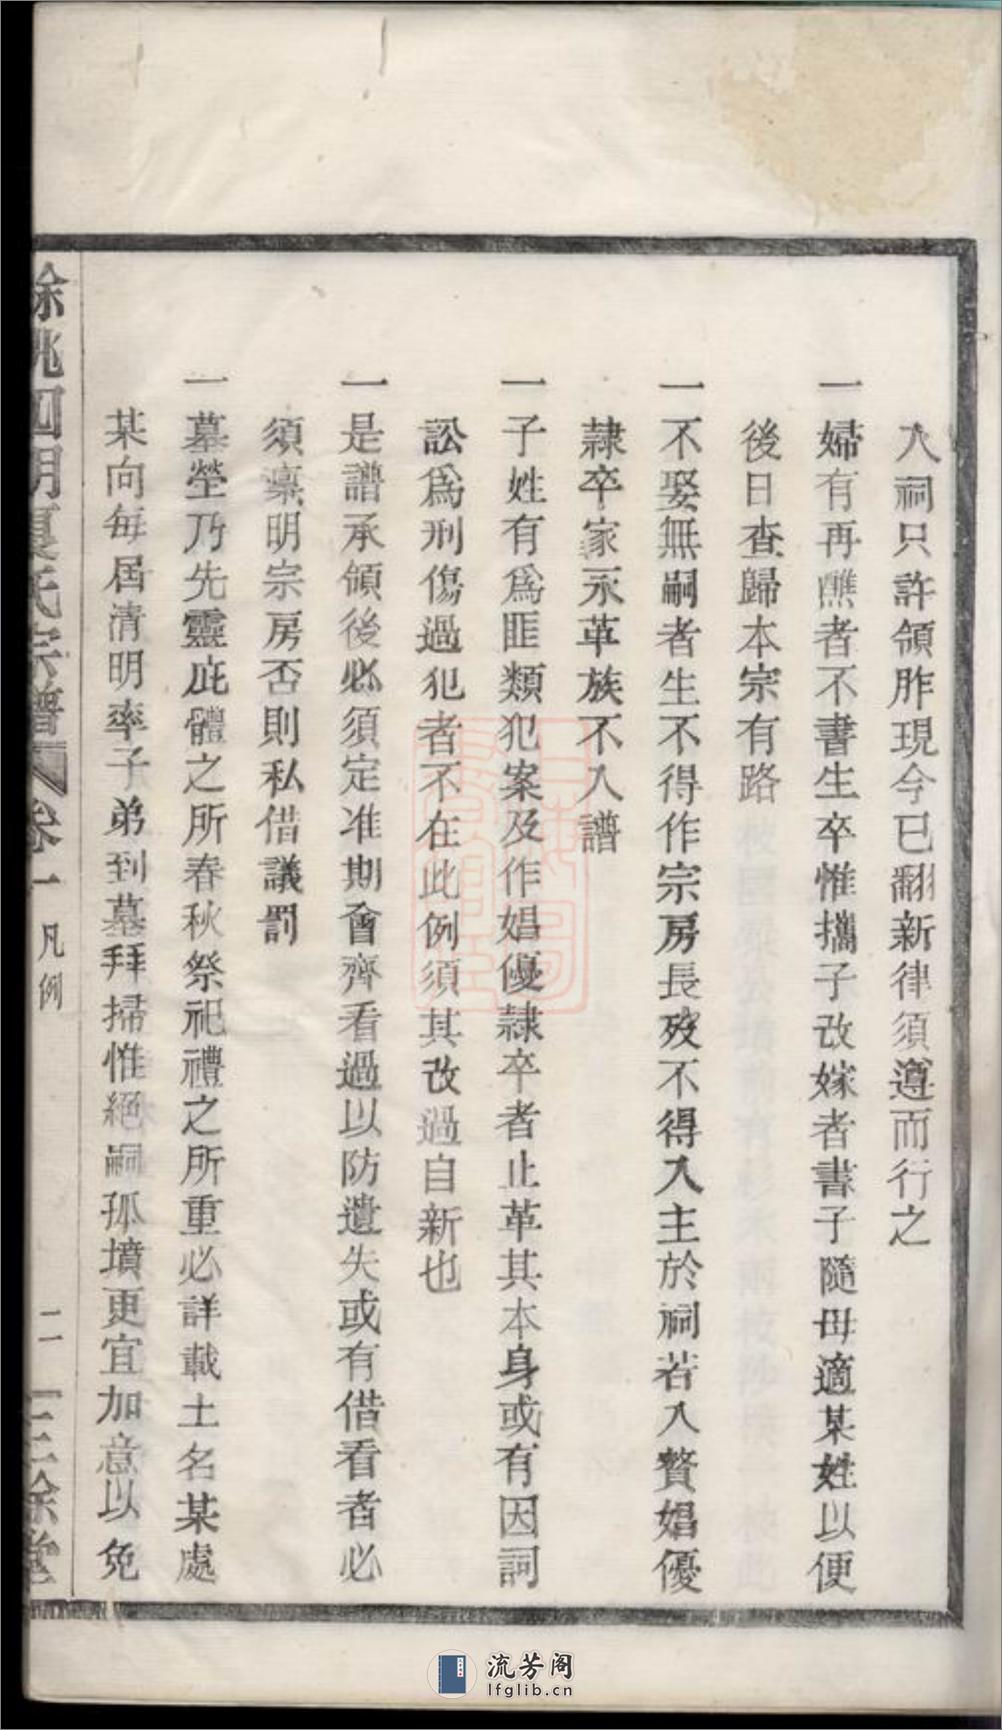 入祠只許領胙現今已翻新律須遵而行之
一婦有再醮者不書生卒惟攜子改嫁者書子隨母適某姓以便
後日查歸本宗有路
一不娶無嗣者生不得作宗房長歿不得入主於祠若入贅娼優
隸卒家永革族不入譜
一子姓有爲匪類犯案及作娼優隸卒者止革其本身或有因詞
訟爲刑傷過犯者不在此例須其改過自新也
一是譜承領後必須定准期會齊看過以防遺失或有借看者必
須稟明宗房否則私借議罰
一墓塋乃先靈庇體之所春秋祭祀禮之所重必詳載土名某處
某向每屆清明率子弟到墓拜掃惟絕嗣孤墳更宜加意以免
餘姚四明夏氏宗譜 卷一 凡例 二 三餘堂
流芳阁
lfglib.cn